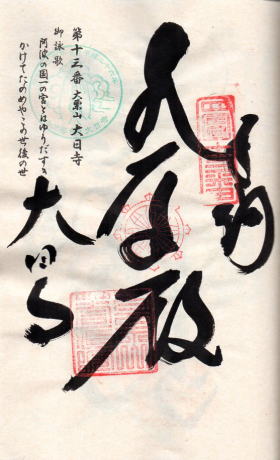 奉納
大悲殿
大日寺
第十三番 大栗山 大日寺
御詠歌
阿波の国一の宮とはゆうだすき
かけてたのめやこの世後の世